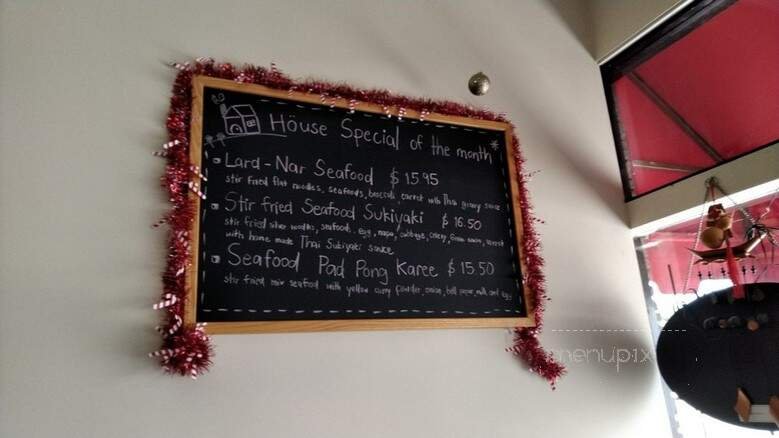 House Special of the month*
Lard-Nar Seafood $15.95
stir fried flat noodles, seafoods, broccoli, carrot with Thai gravy sauce
Stir fried Seafood Sukiyaki $16.50
stir fried silver noodles, seafood, egg, napa, cabbage, celery, Green onion, carrot
with home made Thai Sukiyaki sauce
Seafood Pad Pong Karee $15.50
stir fried mix seafood with yellow curry powder, onion, bell pepper, milk and egg
menupix